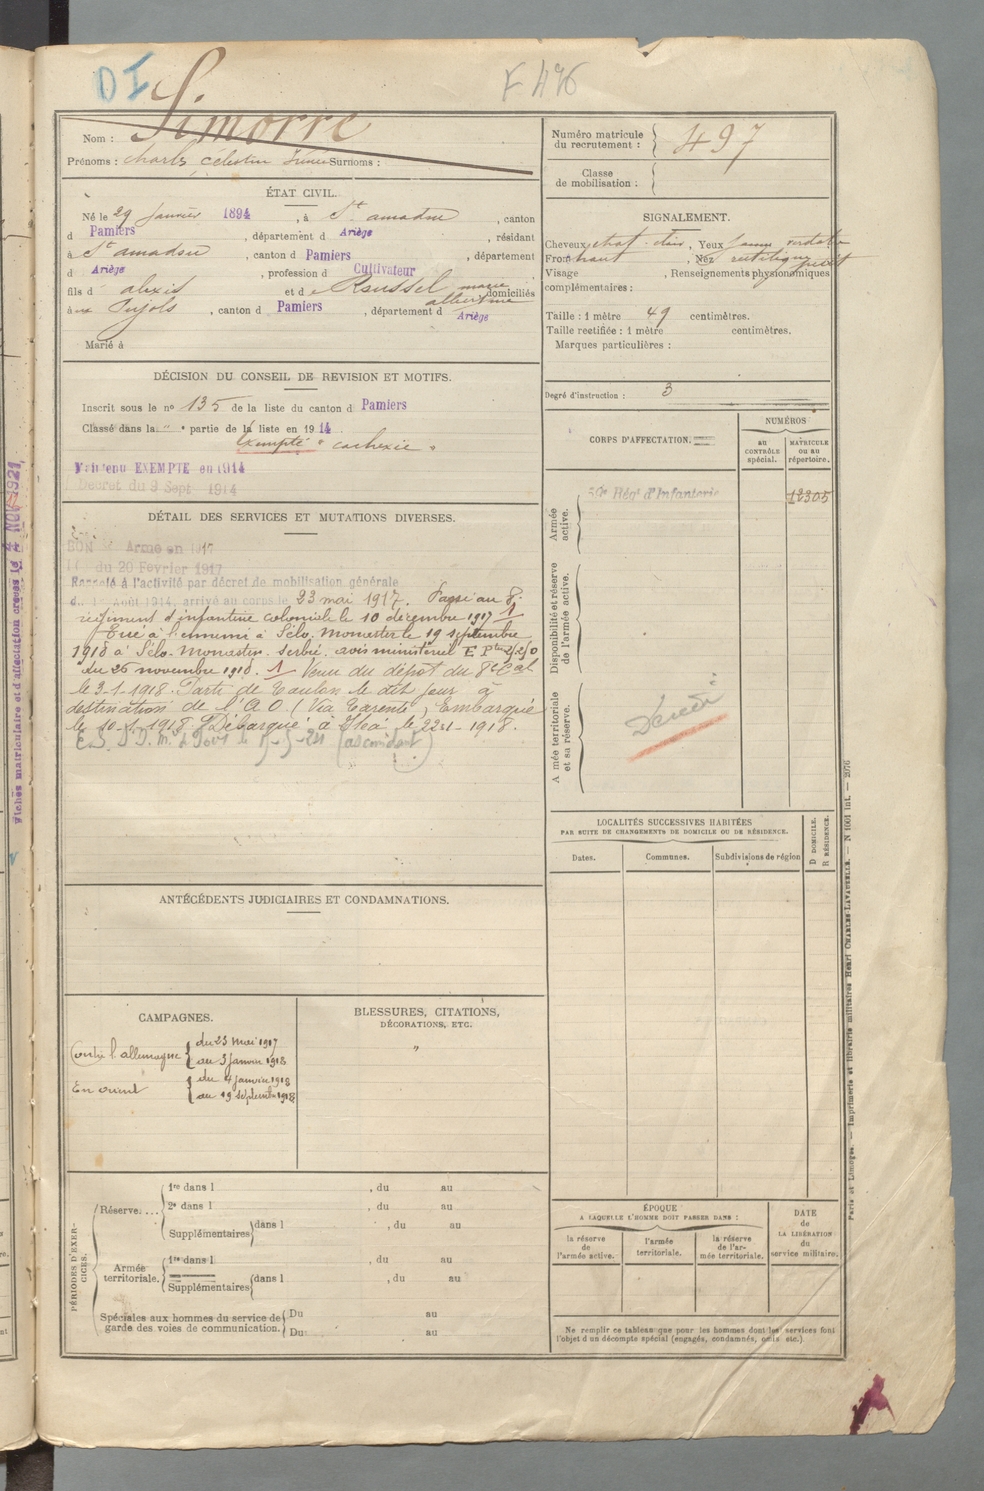 DI
F 496
Simorre
Nom :
Prénoms : Charles Célestin Surnoms :
Numéro matricule du recrutement : 497
Classe de mobilisation :
ÉTAT CIVIL.
Né le 29 Janvier 1894, à St amadou, canton
d Pamiers, département d Ariège, résidant
à St amadou, canton d Pamiers, département
d Ariège, profession d Cultivateur
fils d alexis et d e Roussel marie albertine domiciliés
à aux Pujols, canton d Pamiers, département d Ariège
Marié à
SIGNALEMENT.
Cheveux chat. clair, Yeux jaune verdatre
Front haut, Nez rectiligne petit
Visage , Renseignements physionomiques
complémentaires :
Taille : 1 mètre 49 centimètres.
Taille rectifiée : 1 mètre centimètres.
Marques particulières :
Degré d'instruction : 3
DÉCISION DU CONSEIL DE REVISION ET MOTIFS.
Inscrit sous le no 135 de la liste du canton d Pamiers
Classé dans la " partie de la liste en 1914.
Exempté " cachexie "
Maintenu EXEMPTE en 1914
Décret du 9 Sept 1914
CORPS D'AFFECTATION.
NUMÉROS
au CONTRÔLE spécial.
MATRICULE ou au répertoire.
Armée active.
Régt d'Infanterie
12305
Disponibilité et réserve de l'armée active.
Armée territoriale et sa réserve.
Décédé
DÉTAIL DES SERVICES ET MUTATIONS DIVERSES.
BON Sce Armé en 1917
du 20 Février 1917
Rappelé à l'activité par décret de mobilisation générale
d 1er Août 1914, arrivé au corps le 23 mai 1917. Passé au 8e
régiment d'infanterie coloniale le 10 décembre 1917 1
Tué à l'ennemi à Sélo. Monaster le 19 septembre
1918 à Sélo. Monaster. Serbie. avis ministériel E P
du 26 novembre 1918. 1 Venu du dépôt du 8e Cal
le 3-1-1918. Parti de Toulon le dit jour à
destination de l'A O. (Via Tarente) Embarqué
le 10-1-1918. Débarqué à Itéa le 22-1-1918.
(ascendant)
LOCALITÉS SUCCESSIVES HABITÉES
PAR SUITE DE CHANGEMENTS DE DOMICILE OU DE RÉSIDENCE.
Dates.
Communes.
Subdivisions de région
D DOMICILE.
R RÉSIDENCE.
ANTÉCÉDENTS JUDICIAIRES ET CONDAMNATIONS.
CAMPAGNES.
Contre l'allemagne
du 23 mai 1917
au 3 janvier 1918
En orient
du 4 janvier 1918
au 19 septembre 1918
BLESSURES, CITATIONS,
DÉCORATIONS, ETC.
"
PÉRIODES D'EXERCICES.
Réserve....
1re dans l , du au
2e dans l , du au
Supplémentaires dans l , du au
Armée territoriale.
1re dans l , du au
Supplémentaires dans l , du au
Spéciales aux hommes du service de
garde des voies de communication.
Du au
Du au
ÉPOQUE
A LAQUELLE L'HOMME DOIT PASSER DANS :
la réserve de l'armée active.
l'armée territoriale.
la réserve de l'armée territoriale.
DATE de LA LIBÉRATION du service militaire.
Ne remplir ce tableau que pour les hommes dont les services font
l'objet d'un décompte spécial (engagés, condamnés, omis etc.).
Paris et Limoges. — Imprimerie et librairie militaires Henri CHARLES-LAVAUZELLE. — N 1001 int. — 2076
Fiches matriculaire et d'affectation créées le 4 NOV 1921